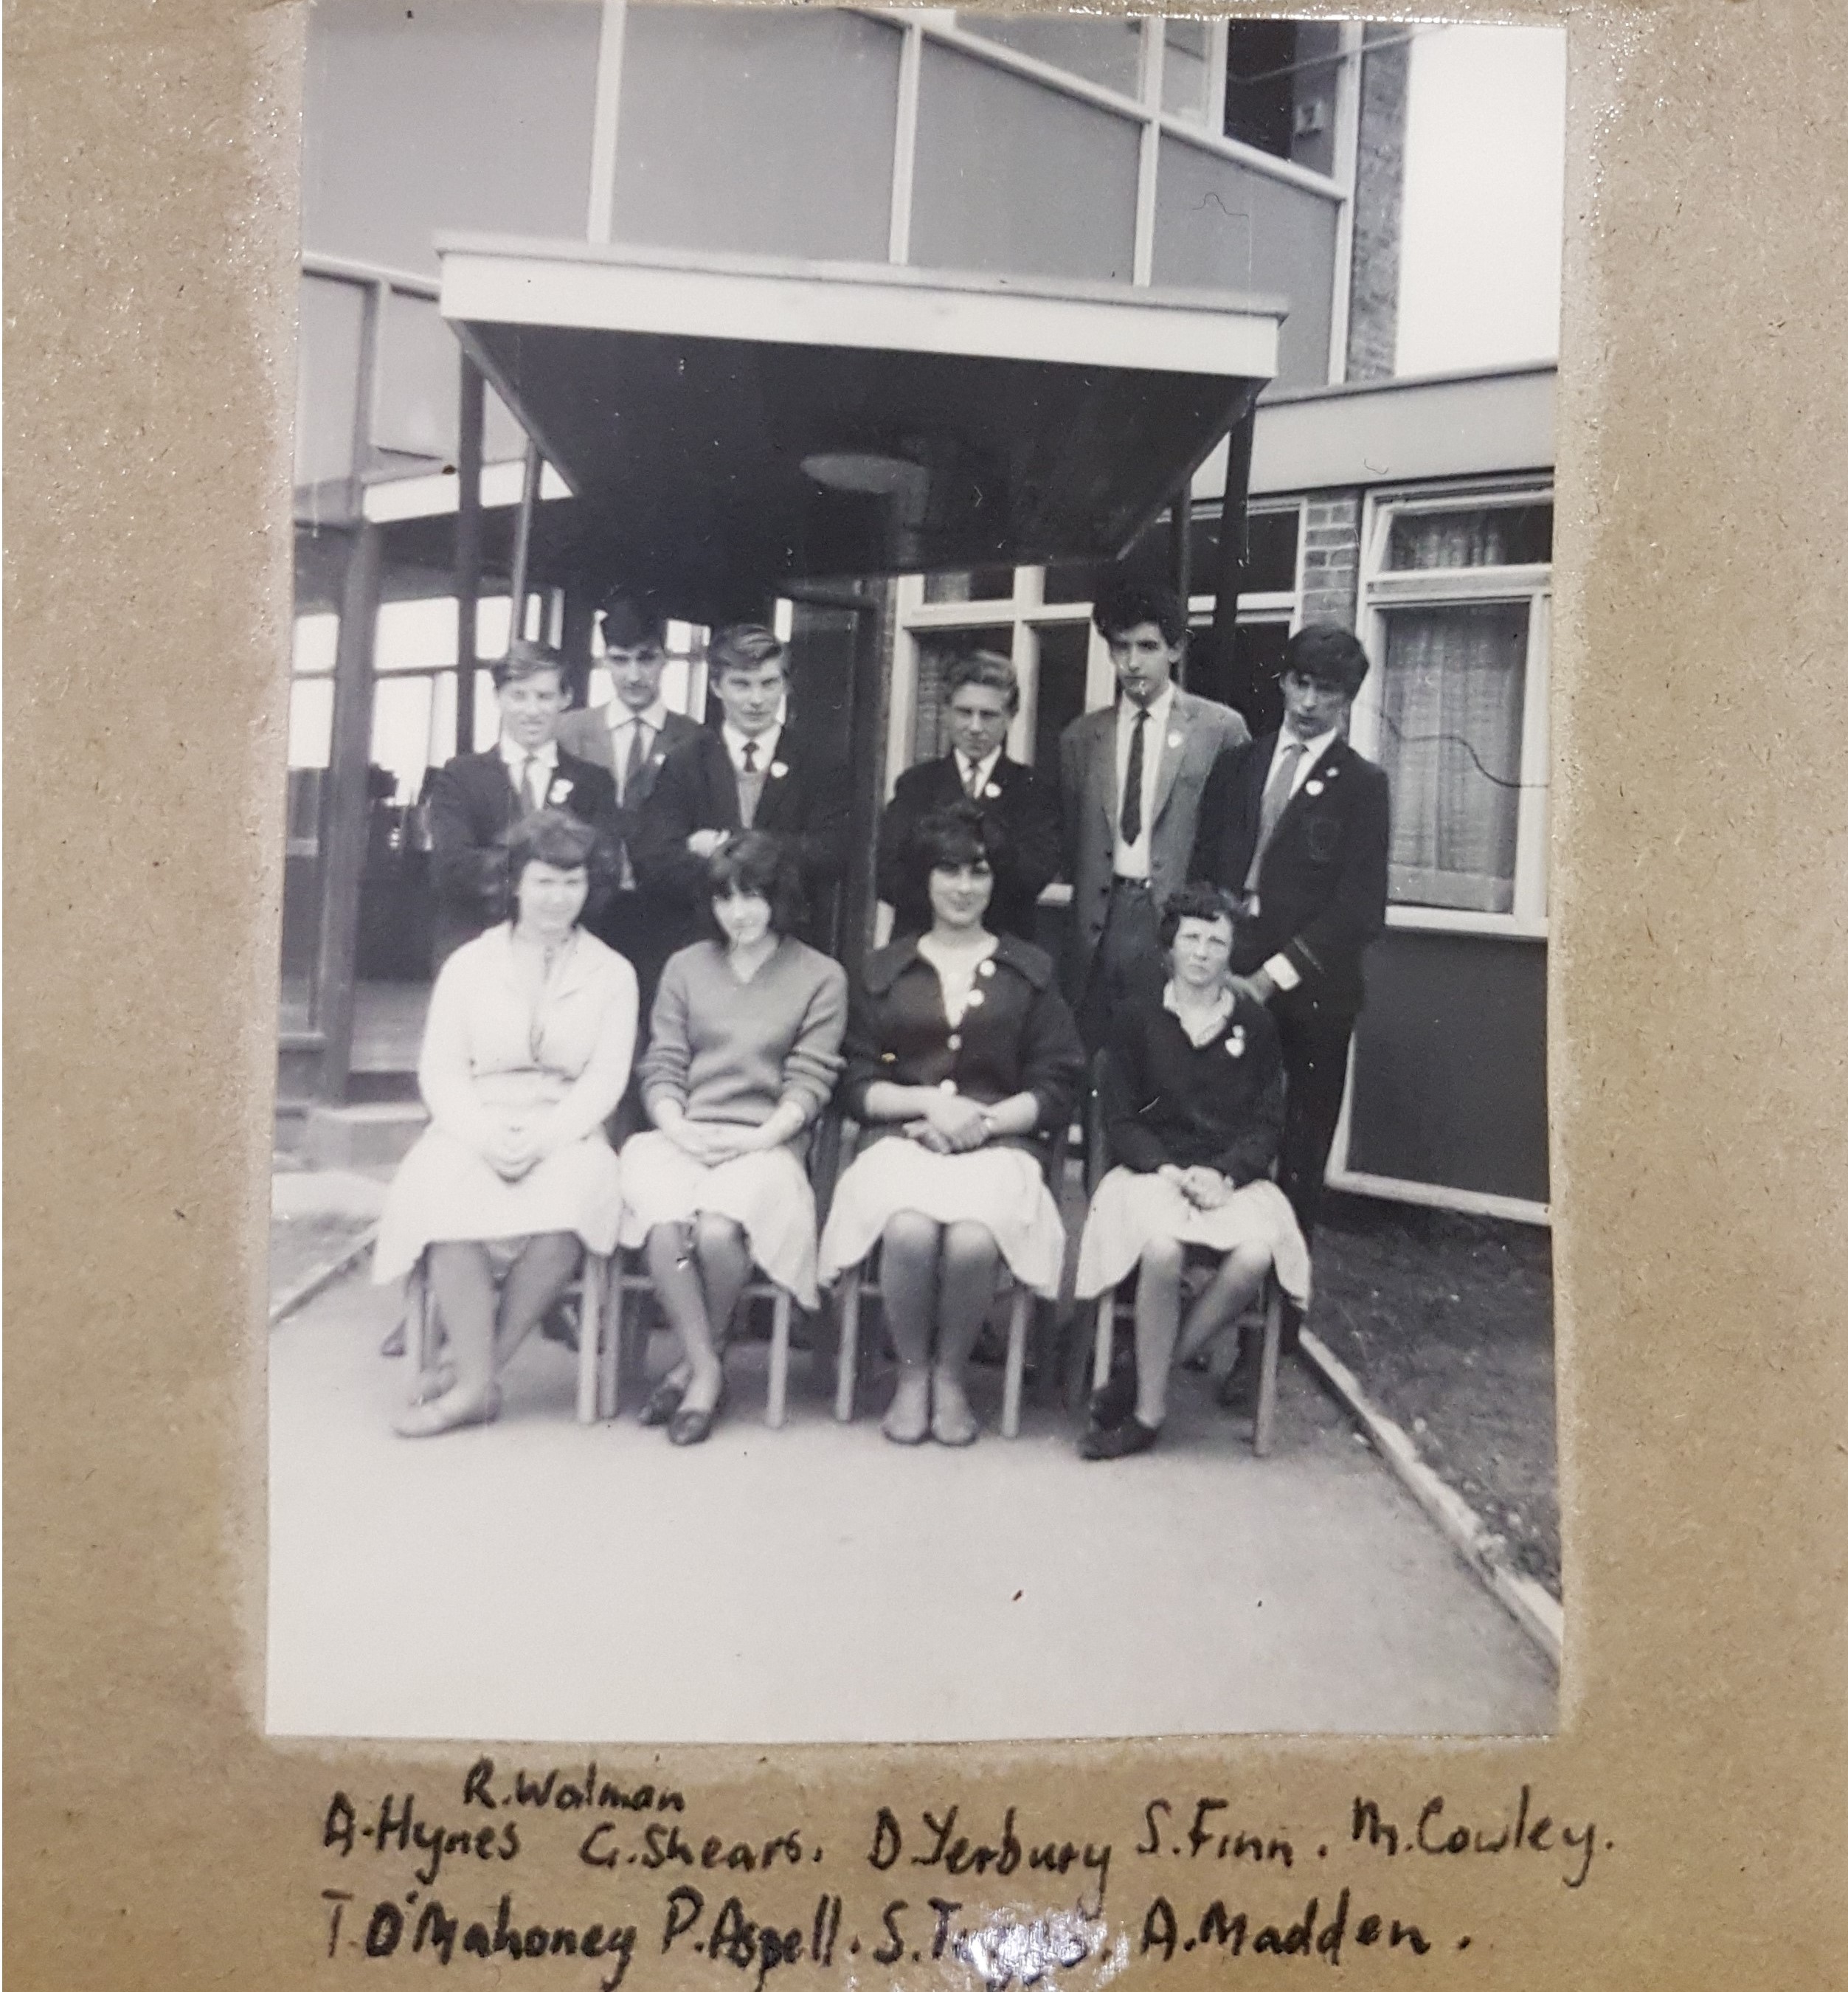 R.Walman
A.Hynes G.Shears. D.Yerbury S.Finn. M.Cowley.
T.O'Mahoney P.Aspell. S. A.Madden.